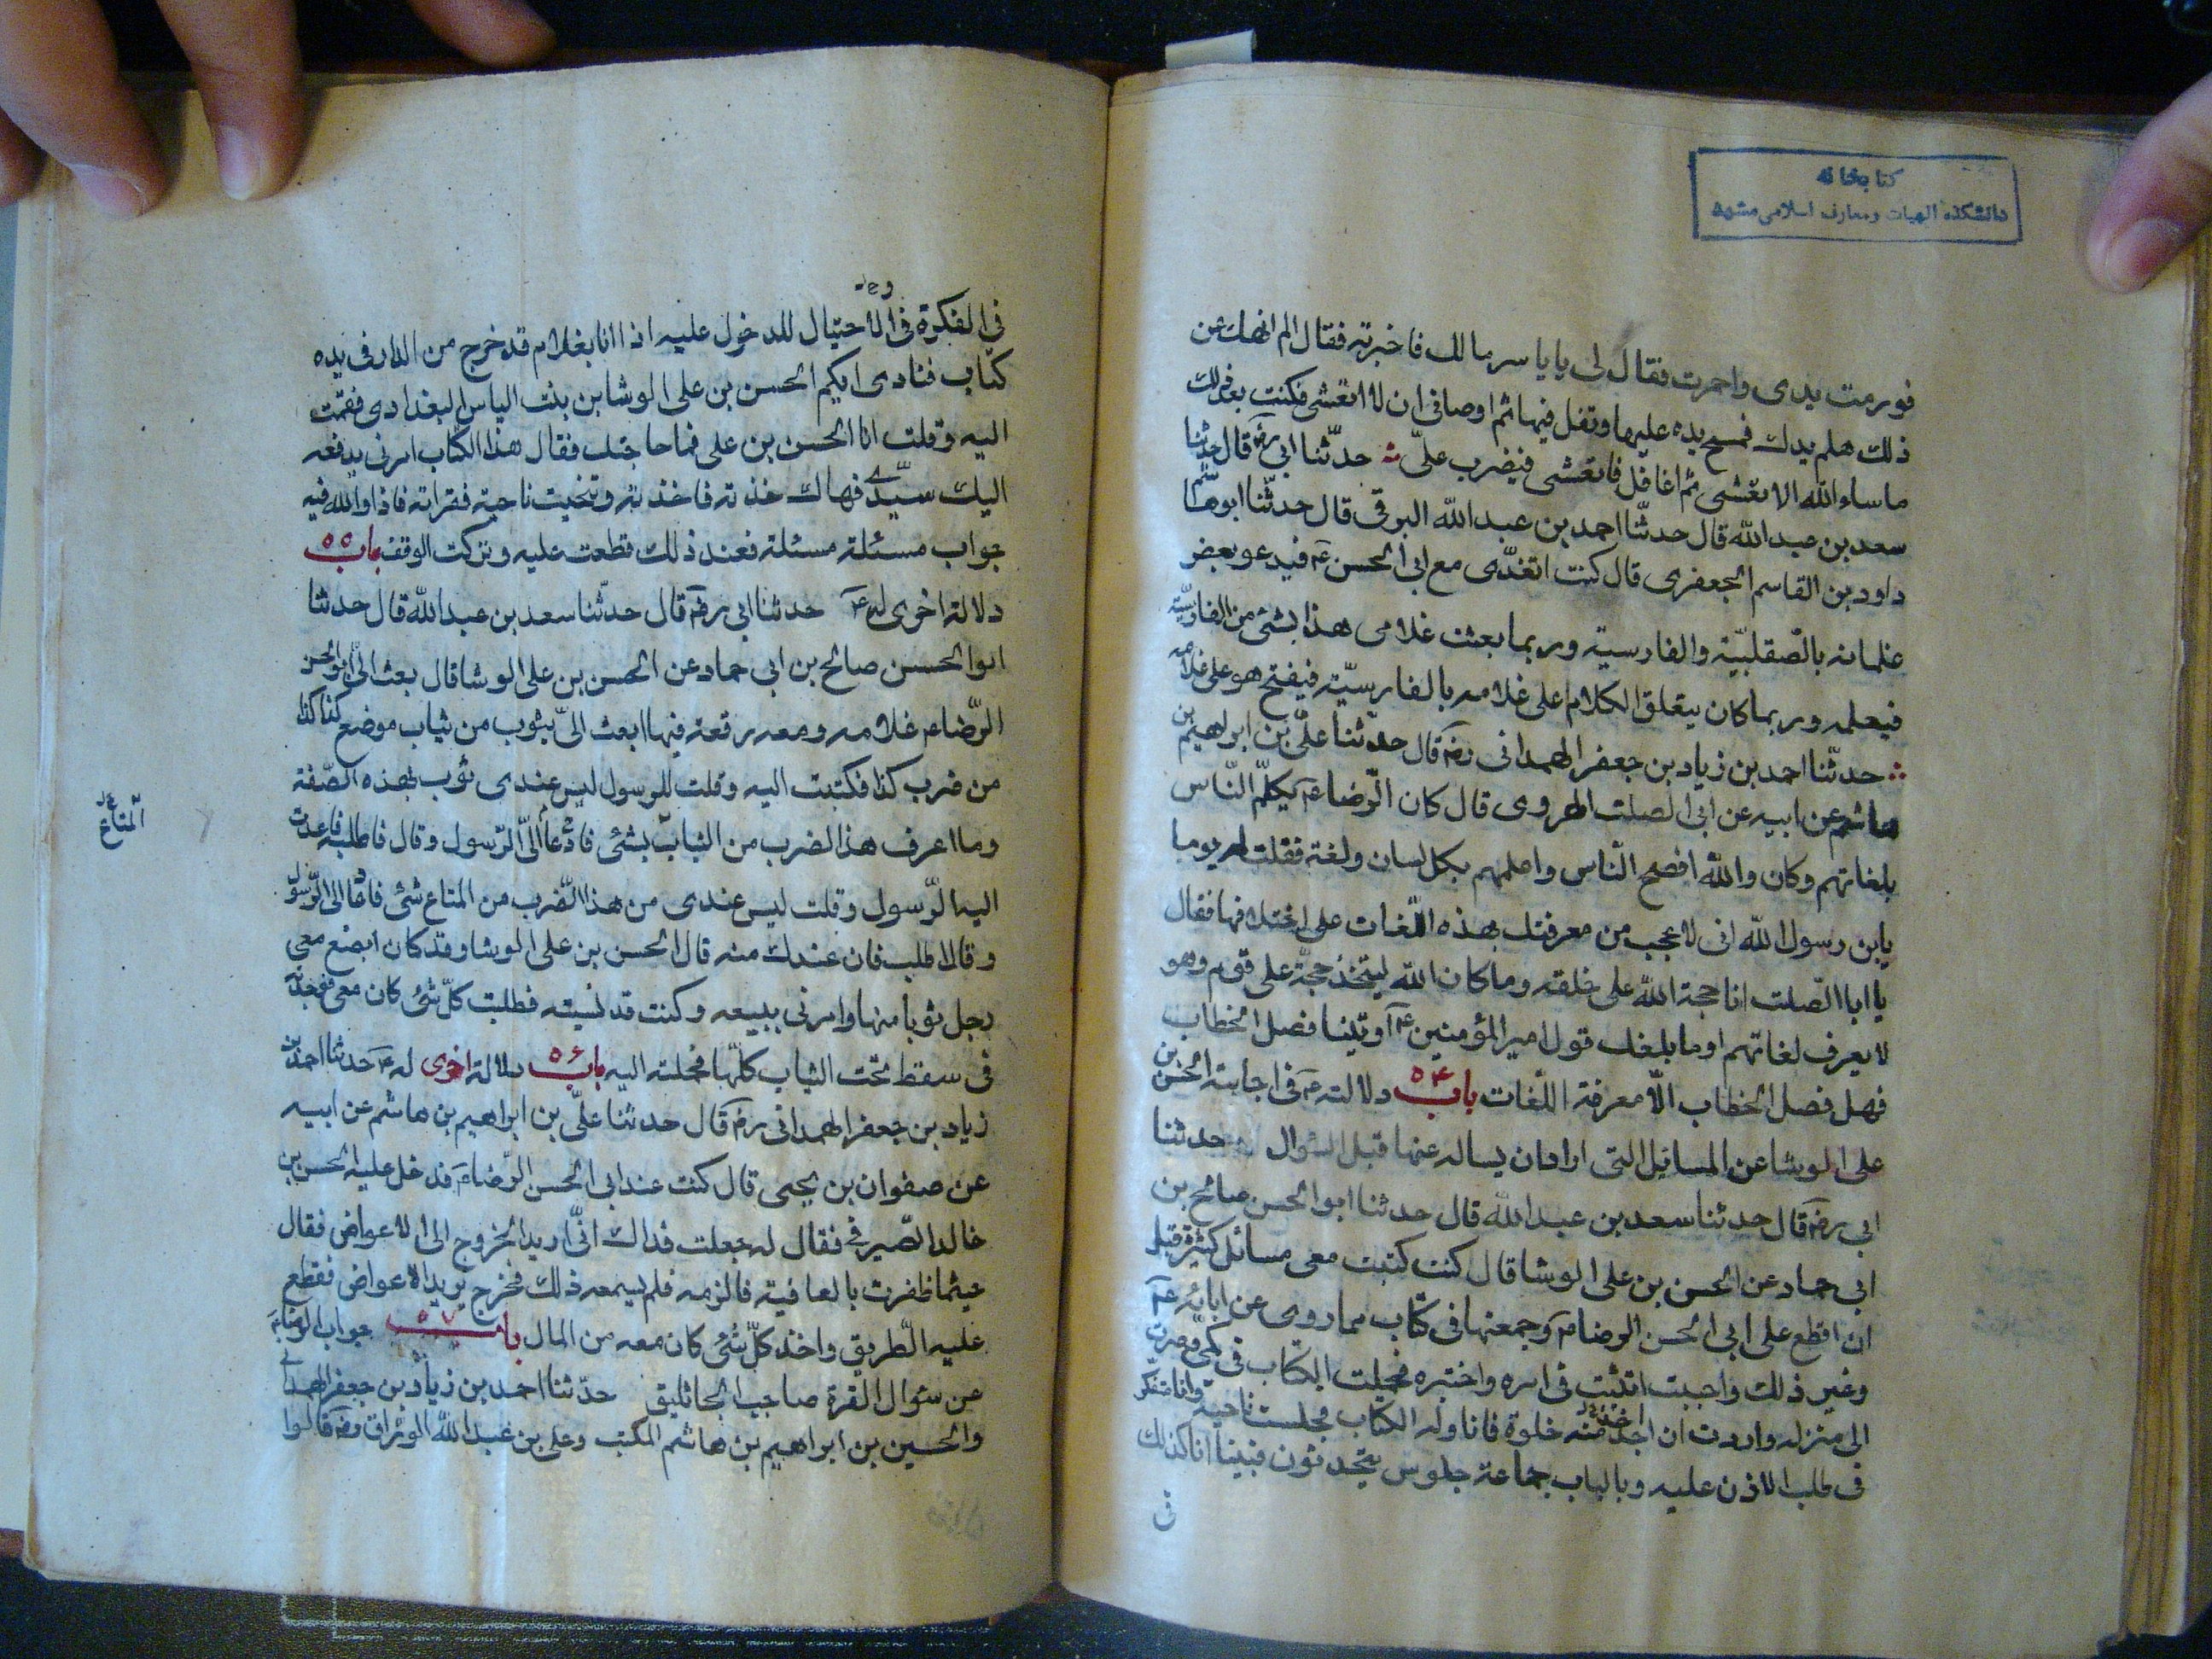 كتابخانه
دانشكده الهيات ومعارف اسلامى مشهد
فورمت يدى واحمرت فقال لى يا ياسر مالك فاخبرته فقال الم انهك عن
ذلك هلم يدك فمسح يده عليها وتفل فيها ثم اوصانى ان لا اتعشى فكنت بعد ذلك
ماساء الله الا تعشى ثم اغافل فاتعشى فيضرب علىّ حدّثنا ابى رضه قال حدثنا
سعد بن عبد الله قال حدثنا احمد بن عبد الله البرقى قال حدثنا ابو هاشم
داود بن القاسم الجعفرى قال كنت اتغدّى مع ابى الحسن ع فيدعو بعض
غلمانه بالصّقلبيّة والفارسية وربما بعثت غلامى هذا بشئ من الفارسيّة
فيعلمه وربما كان يتعلق الكلام على غلامه بالفارسيّة فيفتح هو على غلامه
حدثنا احمد بن زياد بن جعفر الهمدانى رضه قال حدثنا علىّ بن ابراهيم بن
هاشم عن ابيه عن ابى الصلت الهروى قال كان الرّضا ع يكلّم النّاس
بلغاتهم وكان والله افصح النّاس واعلمهم بكل لسان ولغة فقلت له يوما
يابن رسول الله انى لاعجب من معرفتك بهذه اللّغات على اختلافها فقال
يا ابا الصّلت انا حجة الله على خلقه وما كان الله ليتخذ حجّة على قوم وهو
لا يعرف لغاتهم اوما بلغك قول امير المؤمنين ع اوتينا فصل الخطاب
فهل فصل الخطاب الّا معرفة اللّغات باب ٥٤ دلالته ع فى اجابته الحسن بن
على الوشا عن المسائل التى اراد ان يساله عنها قبل السؤال حدثنا
ابى رضه قال حدثنا سعد بن عبد الله قال حدثنا ابوا الحسن صالح بن
ابى حماد عن الحسن بن على الوشا قال كنت كتبت معى مسائل كثيرة قبل
ان اقطع على ابى الحسن الرضا ع وجمعتها فى كتاب مما روى عن ابائه ع
وغير ذلك واحببت اتثبت فى امره واختبره فحملت الكتاب فى كمى وصرت
الى منزله واردت ان اخذ منه خلوة فاناوله الكتاب فجلست ناحية وانا متفكر
فى طلب الاذن عليه وبالباب جماعة جلوس يتحدثون فبينا انا كذلك
فى
فى الفكرة فى الاحتيال للدخول عليه اذا انا بغلام قد خرج من الدار فى يده
كتاب فنادى ايكم الحسن بن على الوشا بن بنت الياس البغدادى فقمت
اليه وقلت انا الحسن بن على فما حاجتك فقال هذا الكتاب امرنى بدفعه
اليك سيّدى فهاك خذته فاخذته وتنحيت ناحية فقراته فاذا والله فيه
جواب مسئلة مسئلة فعند ذلك قطعت عليه وتركت الوقف باب ٥٥
دلالة اخرى له ع حدثنا ابى رضه قال حدّثنا سعد بن عبد الله قال حدثنا
ابوا الحسن صالح بن ابى حماد عن الحسن بن على الوشا قال بعث الىّ ابو الحسن
الرّضا ع غلامه ومعه رقعة فيها ابعث الىّ بثوب من ثياب موضع كذا كذا
من ضرب كذا فكتبت اليه وقلت للرسول ليس عندى ثوب بهذه الصّفة
وما اعرف هذا الضرب من الثياب بشئ فاعاد الىّ الرّسول وقال فاطلبه فاعدت
المتاع
اليه الرّسول وقلت ليس عندى من هذا الضّرب من المتاع شئ فاعاد الى الرّسول
وقال اطلب فان عندك منه قال الحسن بن على الوشا وقد كان ابضع معى
رجل ثوبا منها وامرنى ببيعه وكنت قد نسيته فطلبت كلّ شئ كان معى فوجدته
فى سقط تحت الثياب كلّها فحملته اليه باب ٥٦ دلالة اخرى له ع حدثنا احمد بن
زياد بن جعفر الهمدانى رضه قال حدثنا علىّ بن ابراهيم بن هاشم عن ابيه
عن صفوان بن يحيى قال كنت عند ابى الحسن الرّضا ع فدخل عليه الحسن بن
خالد الصّيرفى فقال له جعلت فداك انّى اريد الخروج الى الاعواض فقال
حيثما ظفرت بالعافية فالزمه فلم يسمعه ذلك فخرج يريد الاعواض فقطع
عليه الطّريق واخذ كلّ شئ كان معه من المال باب ٥٧ جواب الرضا ع
عن سئوال القرة صاحب الجاثليق حدّثنا احمد بن زياد بن جعفر الهمدانى
والحسين بن ابراهيم بن هاشم المكتب وعلى بن عبد الله الوراق رضه قالوا